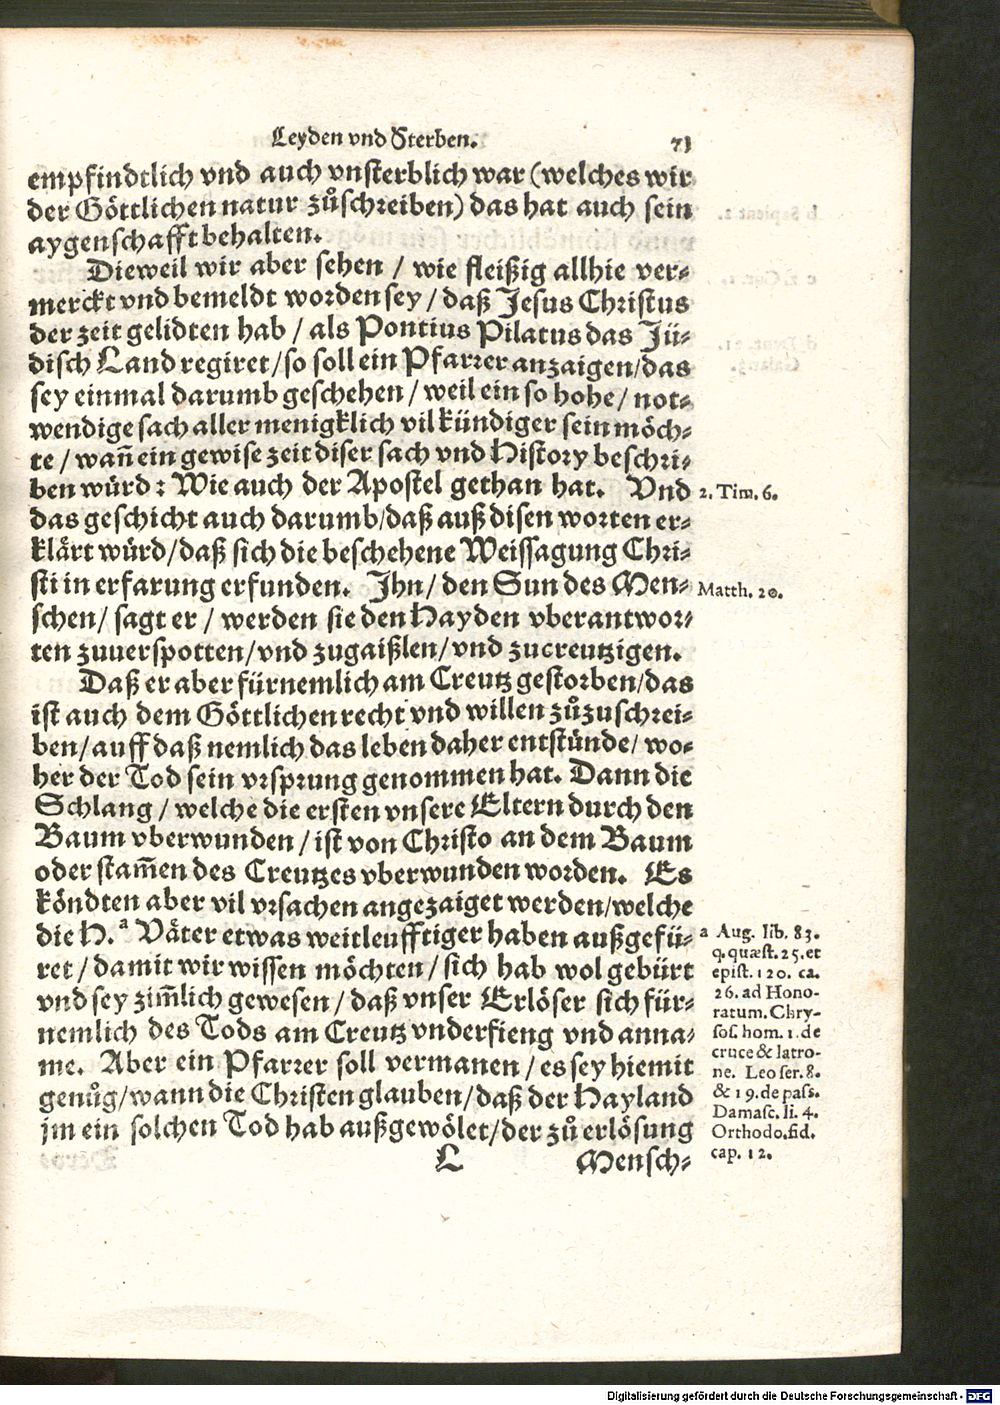 Leyden vnd Sterben. 71
empfindtlich vnd auch vnsterblich war (welches wir
der Göttlichen natur zůschreiben) das hat auch sein
aygenschafft behalten.
Dieweil wir aber sehen / wie fleißig allhie ver-
merckt vnd bemeldt worden sey / daß Jesus Christus
der zeit gelidten hab / als Pontius Pilatus das Jü-
disch Land regiret / so soll ein Pfarrer anzaigen / das
sey einmal darumb geschehen / weil ein so hohe / not-
wendige sach aller menigklich vil kündiger sein möch-
te / wañ ein gewise zeit diser sach vnd History beschri-
ben würd : Wie auch der Apostel gethan hat. Vnd
2. Tim. 6.
das geschicht auch darumb / daß auß disen worten er-
klärt würd / daß sich die beschehene Weissagung Chri-
sti in erfarung erfunden. Jhn / den Sun des Men-
Matth. 20.
schen / sagt er / werden sie den Hayden vberantwor-
ten zuuerspotten / vnd zugaißlen / vnd zucreutzigen.
Daß er aber fürnemlich am Creutz gestorben / das
ist auch dem Göttlichen recht vnd willen zůzuschrei-
ben / auff daß nemlich das leben daher entstünde / wo-
her der Tod sein vrsprung genommen hat. Dann die
Schlang / welche die ersten vnsere Eltern durch den
Baum vberwunden / ist von Christo an dem Baum
oder stam̃en des Creutzes vberwunden worden. Es
köndten aber vil vrsachen angezaiget werden / welche
die H. a Väter etwas weitleufftiger haben außgefü-
ret / damit wir wissen möchten / sich hab wol gebürt
vnd sey zim̃lich gewesen / daß vnser Erlöser sich für-
nemlich des Tods am Creutz vnderfieng vnd anna-
me. Aber ein Pfarrer soll vermanen / es sey hiemit
genůg / wann die Christen glauben / daß der Hayland
jm ein solchen Tod hab außgewölet / der zů erlösung
a Aug. lib. 83.
q. quæst. 25. et
epist. 120. ca.
26. ad Hono-
ratum. Chry-
sos. hom. 1. de
cruce & latro-
ne. Leo ser. 8.
& 19. de pass.
Damasc. li. 4.
Orthodo. fid.
cap. 12.
L Mensch-
Digitalisierung gefördert durch die Deutsche Forschungsgemeinschaft - DFG